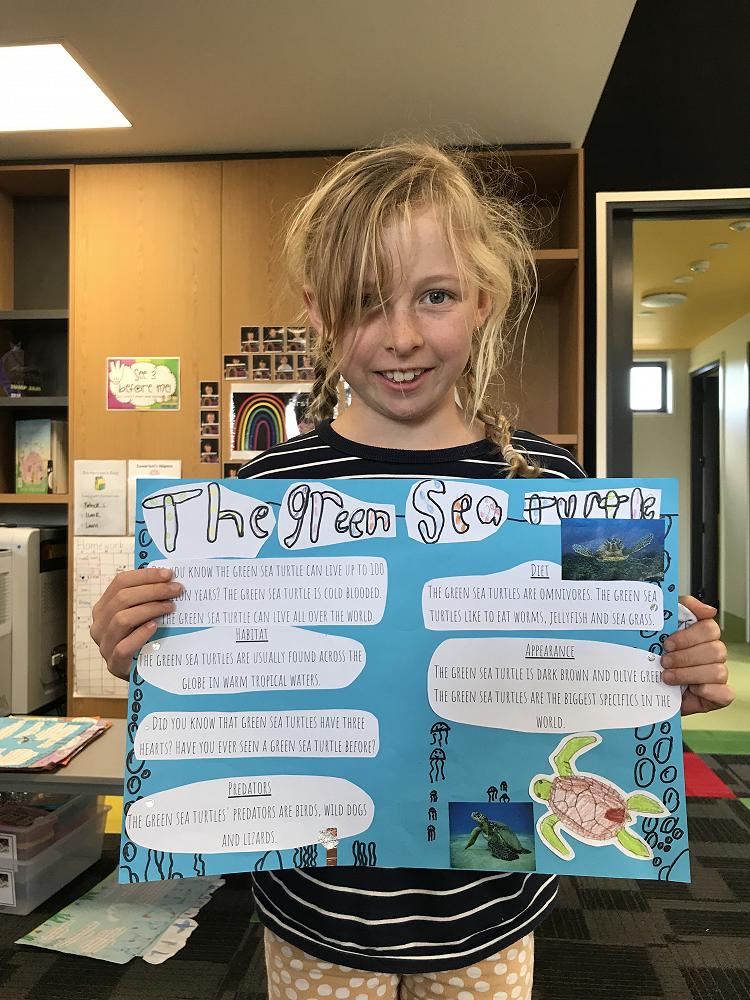 The green Sea turtle
you know the green sea turtle can live up to 100
years? The green sea turtle is cold blooded.
he green sea turtle can live all over the world.
Habitat
The green sea turtles are usually found across the
globe in warm tropical waters.
Did you know that green sea turtles have three
hearts? Have you ever seen a green sea turtle before?
Predators
The green sea turtles' predators are birds, wild dogs
and lizards.
Diet
The green sea turtles are omnivores. The green sea
turtles like to eat worms, jellyfish and sea grass.
Appearance
The green sea turtle is dark brown and olive green
The green sea turtles are the biggest specifics in the
world.
See 3
before me!
Homework